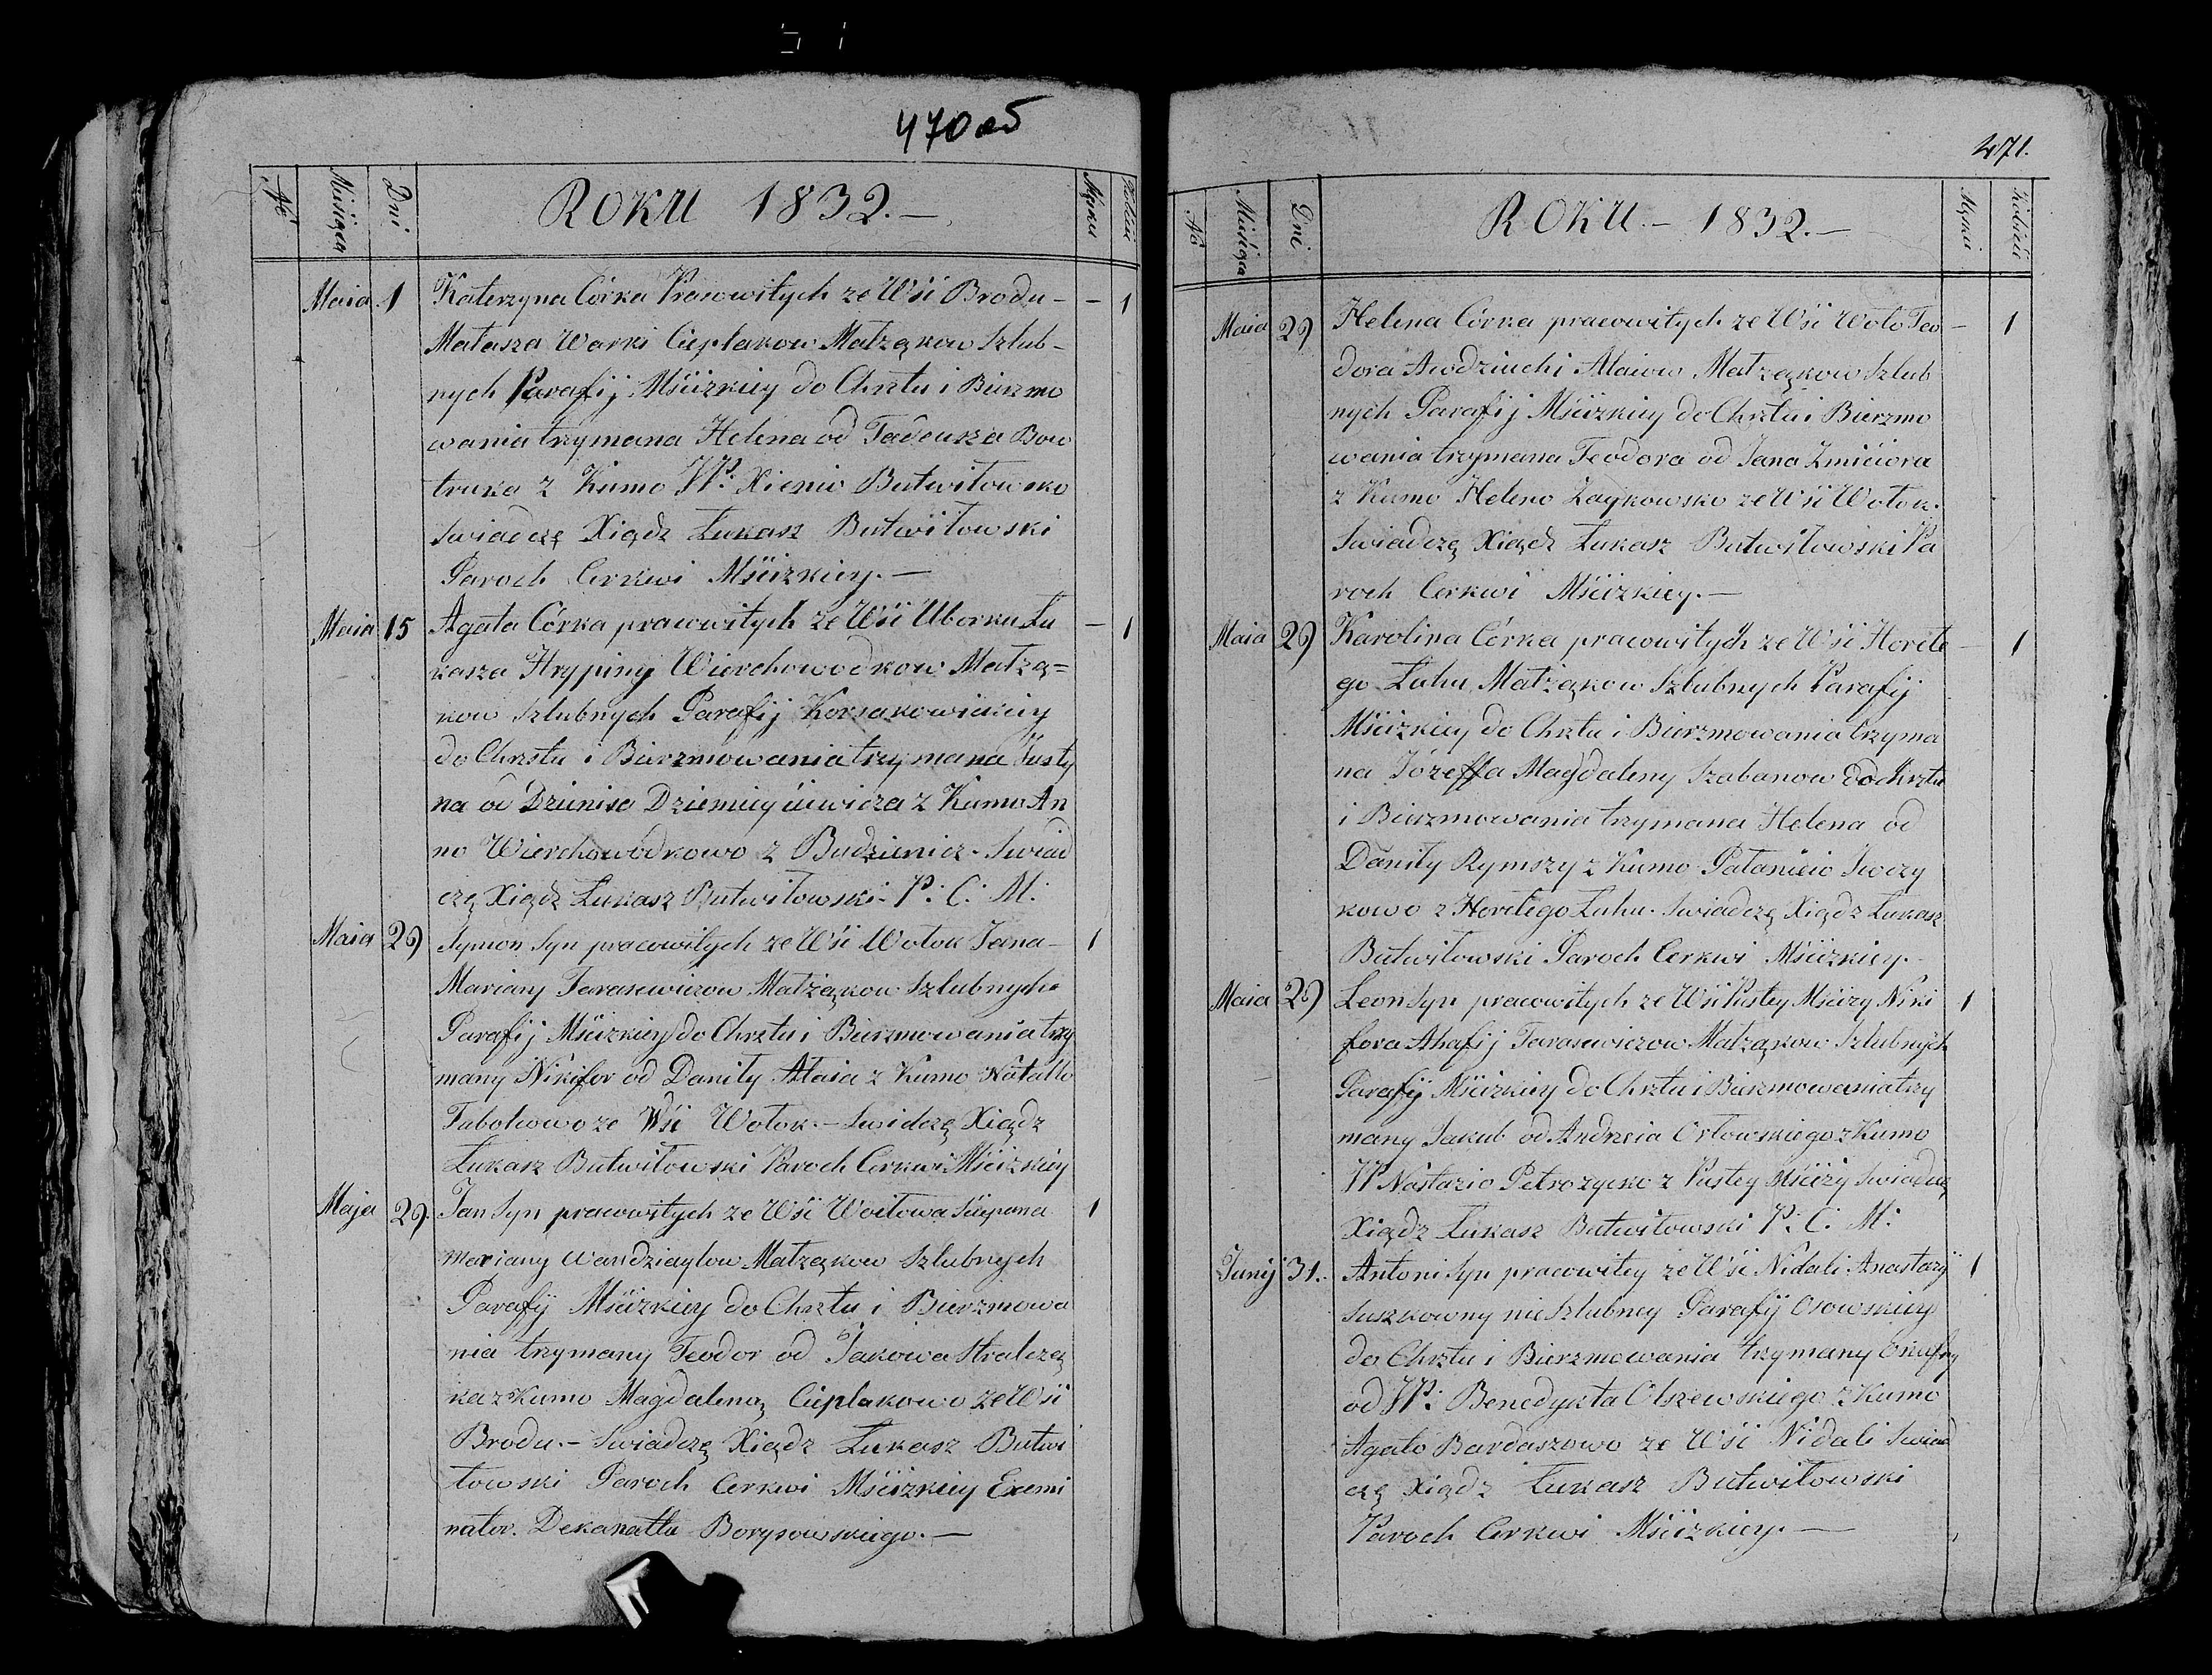 470 об
№ Miesiąca Dni ROKU 1832.— Męska Kobiet
Maia 1 Katerzyna Córka Pracowitych ze Wsi Brodu — — 1
Matasza Warki Cieplakow Małżąkow Szlub-
nych Parafij Mścizkiey do Chrztu i Bierzmo
wania trzymana Helena od Tadeusza Bow
truka z Kumo JP: Xienio Butwiłowsko
Swiadczę Xiądz Łukasz Butwiłowski
Paroch Cerkwi Mścizkiey.—
Maia 15 Agata Córka pracowitych ze Wsi Uborku Łu — 1
kasza Hrypiny Wierchowodkow Małżą=
kow Szlubnych Parafij Korsakowickiey
do Chrztu i Bierzmowania trzymana Justy
na od Dzienisa Dziemieyciewicza z Kumo An
no Wierchowódkowo z Budzienicz. Swiad
czę Xiądz Łukasz Butwiłowski. P: C: M:
Maia 29 Symon Syn pracowitych ze Wsi Wołok Jana — 1
Mariany Tarasewiczow Małżąkow Szlubnych
Parafij Mścizkiey do Chrztu i Bierzmowania trzy
many Nikifor od Daniły Ałaia z Kumo Natallo
Tabolowo ze Wsi Wołok.— Swidczę Xiądz
Łukasz Butwiłowski Paroch Cerkwi Mścizkiey
Maja 29. Jan Syn pracowitych ze Wsi Woiłowa Sciepana 1
Mariany Wandziayłow Małżąkow Szlubnych
Parafij Mścizkiey do Chrztu i Bierzmowa
nia trzymany Teodor od Jakowa Stralczą
ka z Kumo Magdaleną Cieplakowo ze Wsi
Brodu.— Swiadczę Xiądz Łukasz Butwi
łowski Paroch Cerkwi Mścizkiey Exami
nator. Dekanattu Borysowskiego.—
471.
№ Miesiąca Dni ROKU.— 1832.— Męska Kobiet
Maia 29 Helena Córka pracowitych ze Wsi Woło Teo — 1
dora Awdziuchi Ałaiow Małżąkow Szlub
nych Parafij Mścizkiey do Chrztu i Bierzmo
wania trzymana Teodora od Jana Zmiciora
z Kumo Heleno Zaykowsko ze Wsi Wołok.
Swiadczę Xiądz Łukasz Butwiłowski Pa
roch Cerkwi Mścizkiey.—
Maia 29 Karolina Córka pracowitych ze Wsi Horełe — 1
go Łuhu Małżąkow Szlubnych Parafij
Mścizkiey do Chrztu i Bierzmowania trzyma
na Józeffa Magdaleny Szabanow do Chrztu
i Bierzmowania trzymana Helena od
Daniły Rymszy z Kumo Pałanieio Swczy
kowo z Horełego Łuhu. Swiadczę Xiądz Łukasz
Butwiłowski Paroch Cerkwi Mścizkiey.
Maia 29 Leon Syn pracowitych ze Wsi Pustey Mścizy Niki 1
fora Ahafij Tarasewiczow Małżąkow Szlubnych
Parafij Mścizkiey do Chrztu i Bierzmowania trzy
many Jakub od Andreia Orłowskiego z Kumo
JP Nastazio Petrozycko z Pustey Mścizy Swiadczę
Xiądz Łukasz Butwiłowski P: C: M:
Junij 31. Antoni Syn pracowitey ze Wsi Nidali Anastazij 1
Suszkowny nieszlubney Parafij Osowskiey
do Chrztu i Bierzmowania trzymany Onufry
od JP: Benedykta Olszewskiego z Kumo
Agato Bardaszowo ze Wsi Nidali Swiad
czę Xiądz Łukasz Butwiłowski
Paroch Cerkwi Mścizkiey.—